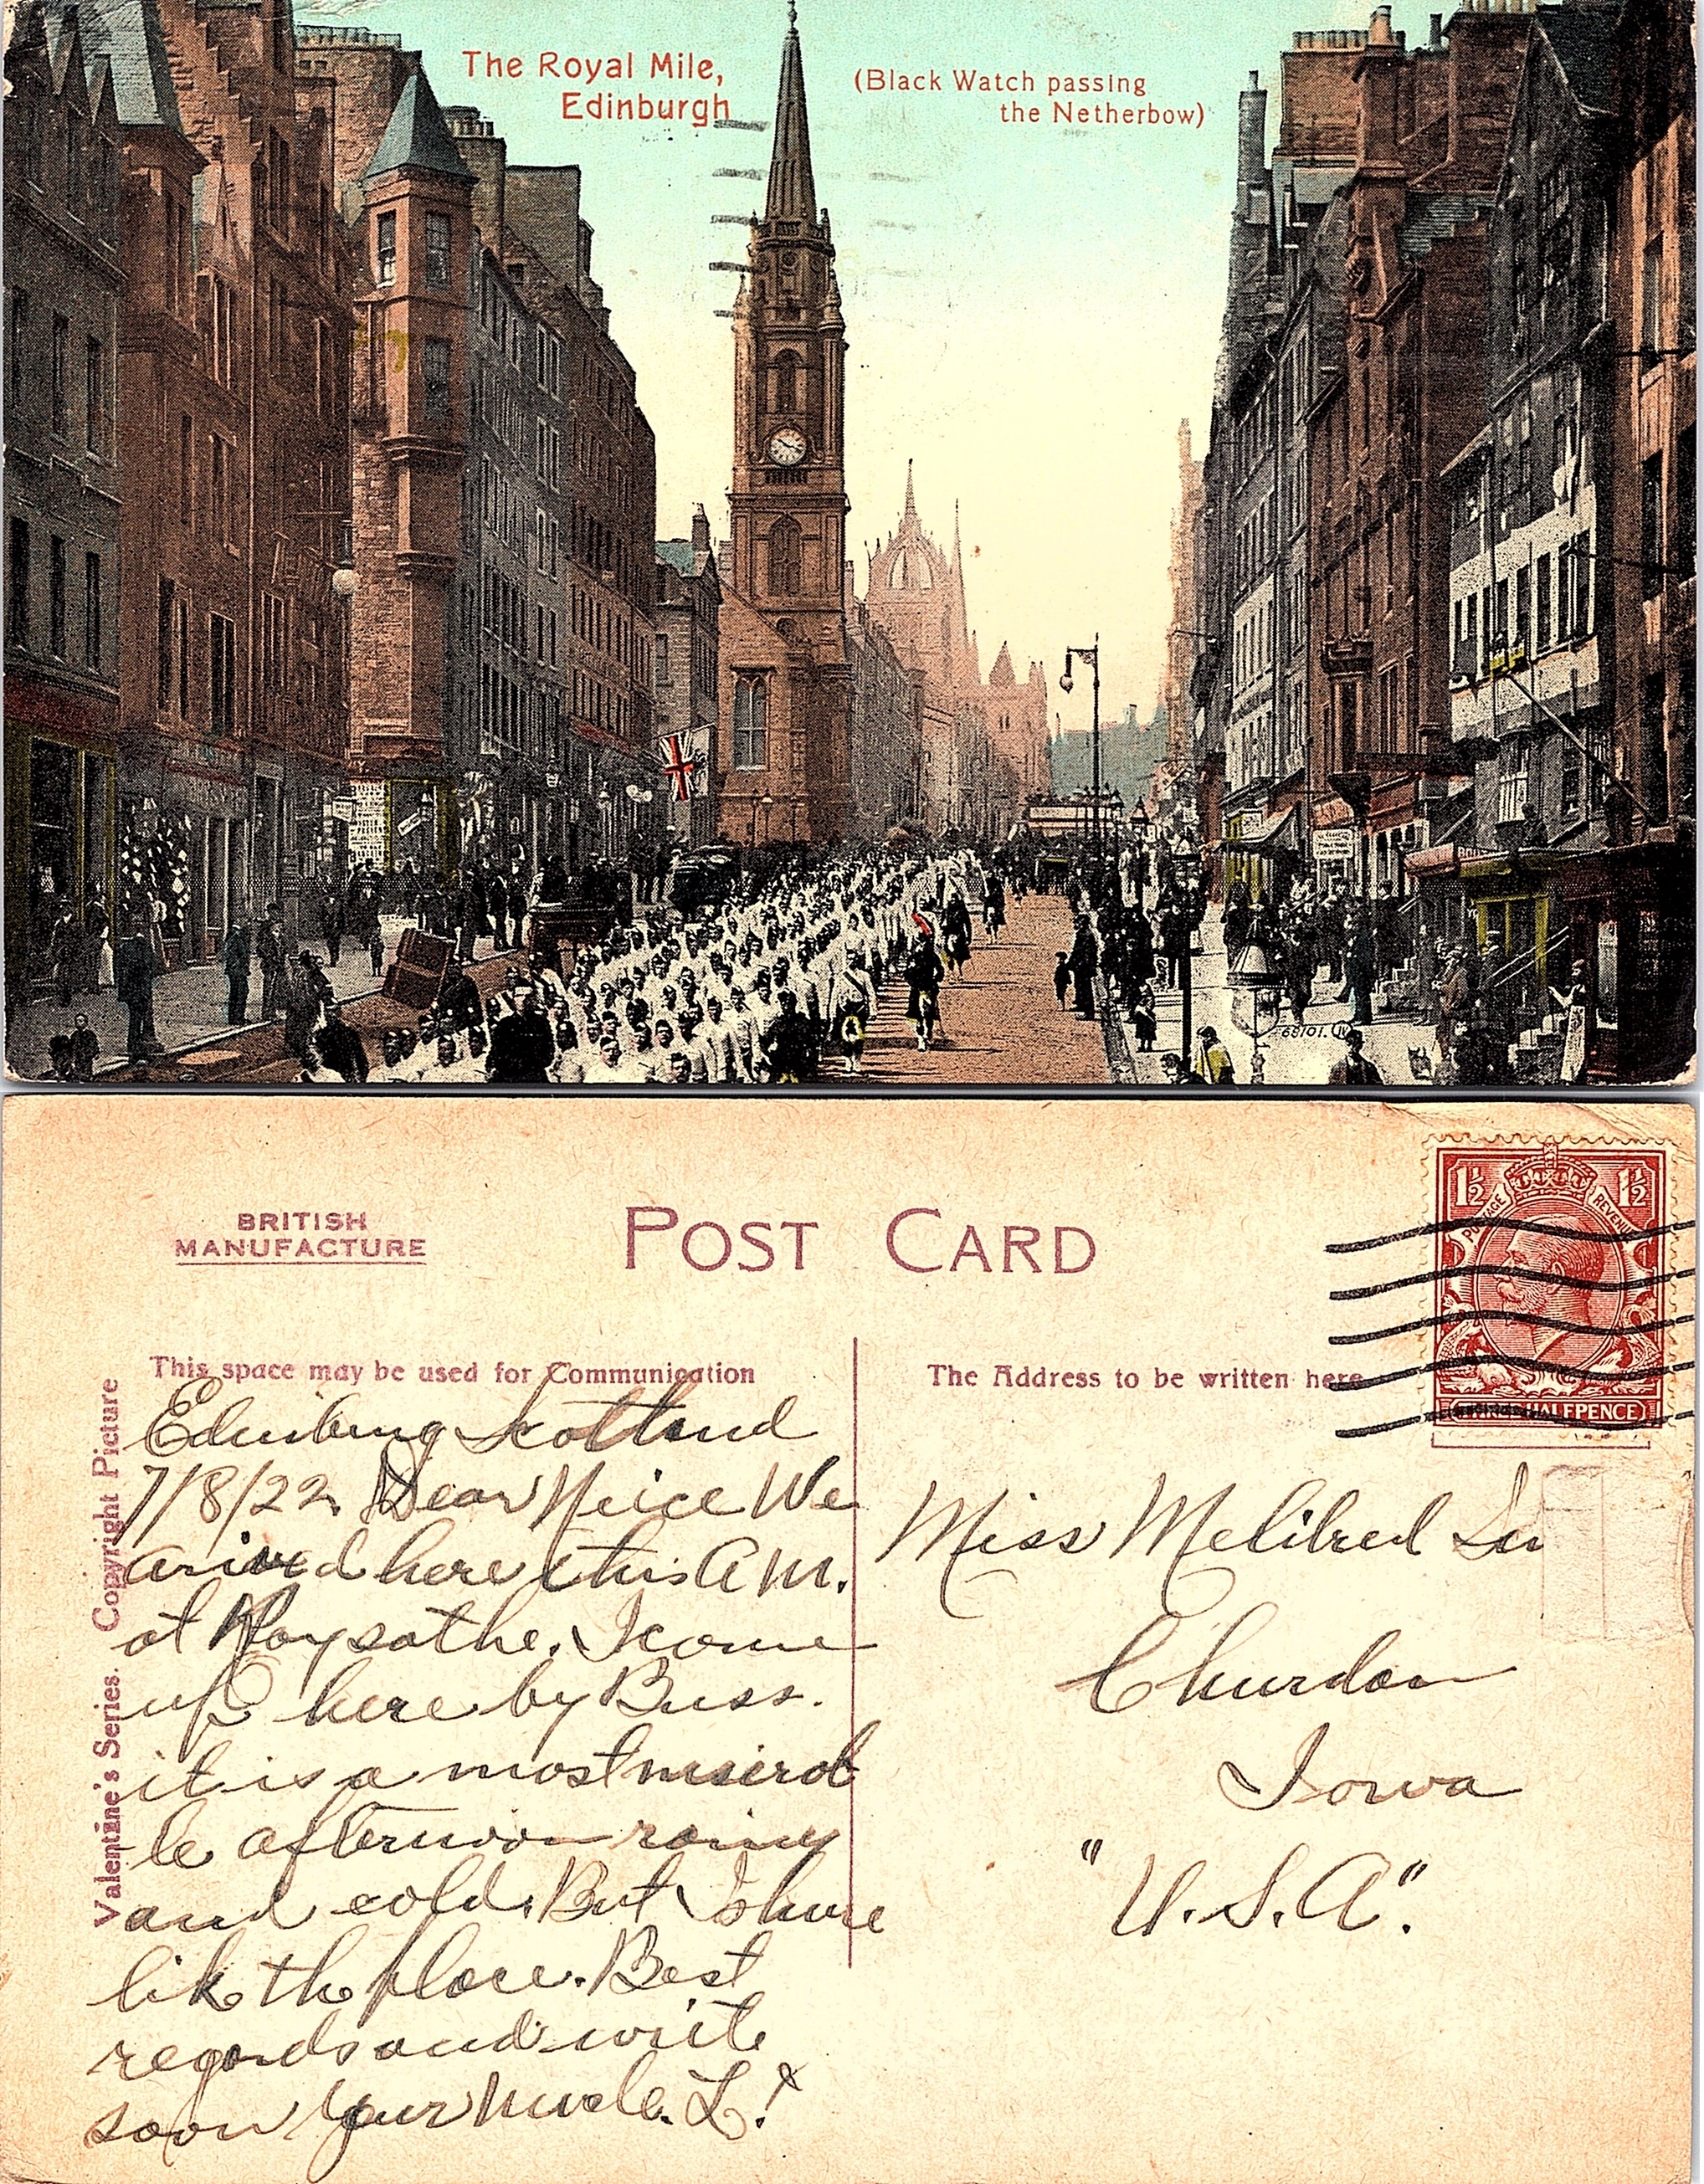 The Royal Mile,
Edinburgh
(Black Watch passing
the Netherbow)
68101. JV
BRITISH
MANUFACTURE
POST CARD
1½ 1½
POSTAGE REVENUE
HALFPENCE
This space may be used for Communication
The Address to be written here
Valentine's Series. Copyright Picture
Edinburg Scotland
7/8/22. Dear Neice We
arived here this A M.
at Roysathe. I come
up here by Buss.
it is a most miserab
-le afternoon rainy
and cold. But I shure
like the place. Best
regards and write
soon Your Uncle. L.
Miss Melilred
Churdan
Iowa
"U.S.A".